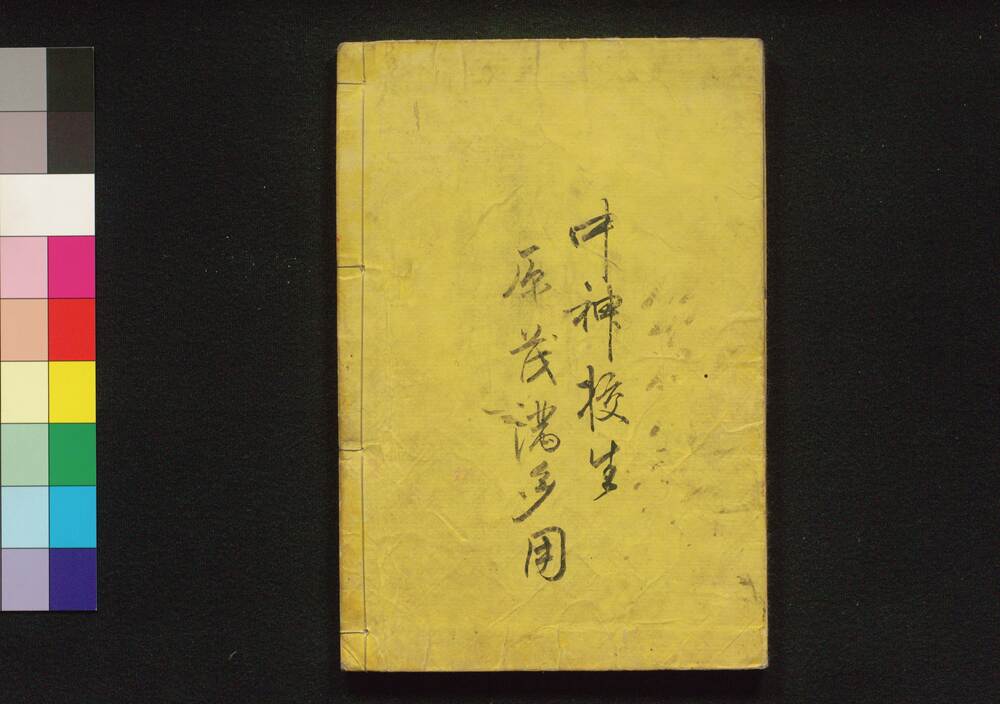 中神校生
原茂満多用